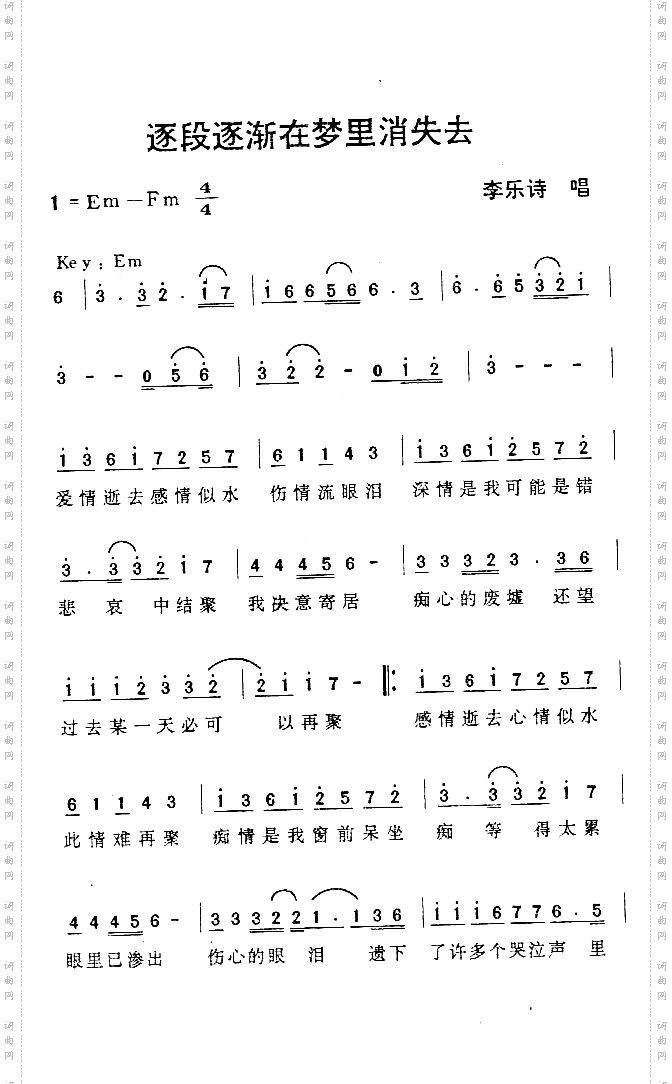 逐段逐渐在梦里消失去
1 = Em — Fm 4/4
李乐诗 唱
Key : Em
6 | 3 . 3 2 . 1 7 | 1 6 6 5 6 6 . 3 | 6 . 6 5 3 2 1 |
3 - - 0 5 6 | 3 2 2 - 0 1 2 | 3 - - - |
1 3 6 1 7 2 5 7 | 6 1 1 4 3 | 1 3 6 1 2 5 7 2 |
爱情逝去感情似水 伤情流眼泪 深情是我可能是错
3 . 3 3 2 1 7 | 4 4 4 5 6 - | 3 3 3 2 3 . 3 6 |
悲 哀 中结聚 我决意寄居 痴心的废墟 还望
1 1 1 2 3 3 2 | 2 1 1 7 - ‖: 1 3 6 1 7 2 5 7 |
过去某一天必可 以再聚 感情逝去心情似水
6 1 1 4 3 | 1 3 6 1 2 5 7 2 | 3 . 3 3 2 1 7
此情难再聚 痴情是我窗前呆坐 痴 等 得太累
4 4 4 5 6 - | 3 3 3 2 2 1 . 1 3 6 | 1 1 1 6 7 7 6 . 5 |
眼里已渗出 伤心的眼 泪 遗下 了许多个哭泣声 里
词曲网